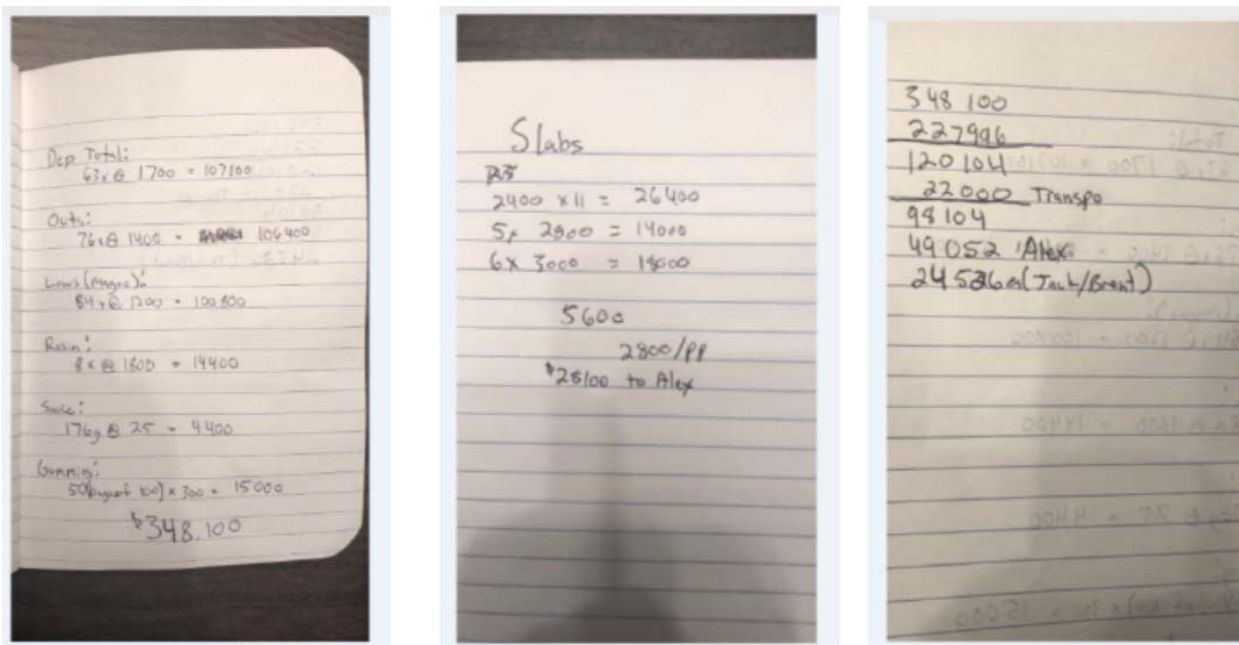 Dep Total:
63x @ 1700 = 107100
Outs:
76x @ 1400 = 106400
Lows (mngo):
84x @ 1200 = 100800
Rosin:
8x @ 1800 = 14400
176g @ 25 = 4400
Gummies:
50(bags of 100) x 300 = 15000
$348,100
Slabs
2400 x 11 = 26400
5x 2800 = 14000
6x 3000 = 18000
5600
2800/PP
$28100 to Alex
348 100
227996
120104
22000 Transpo
98104
49052 Alex
24526 (Jack/Brent)